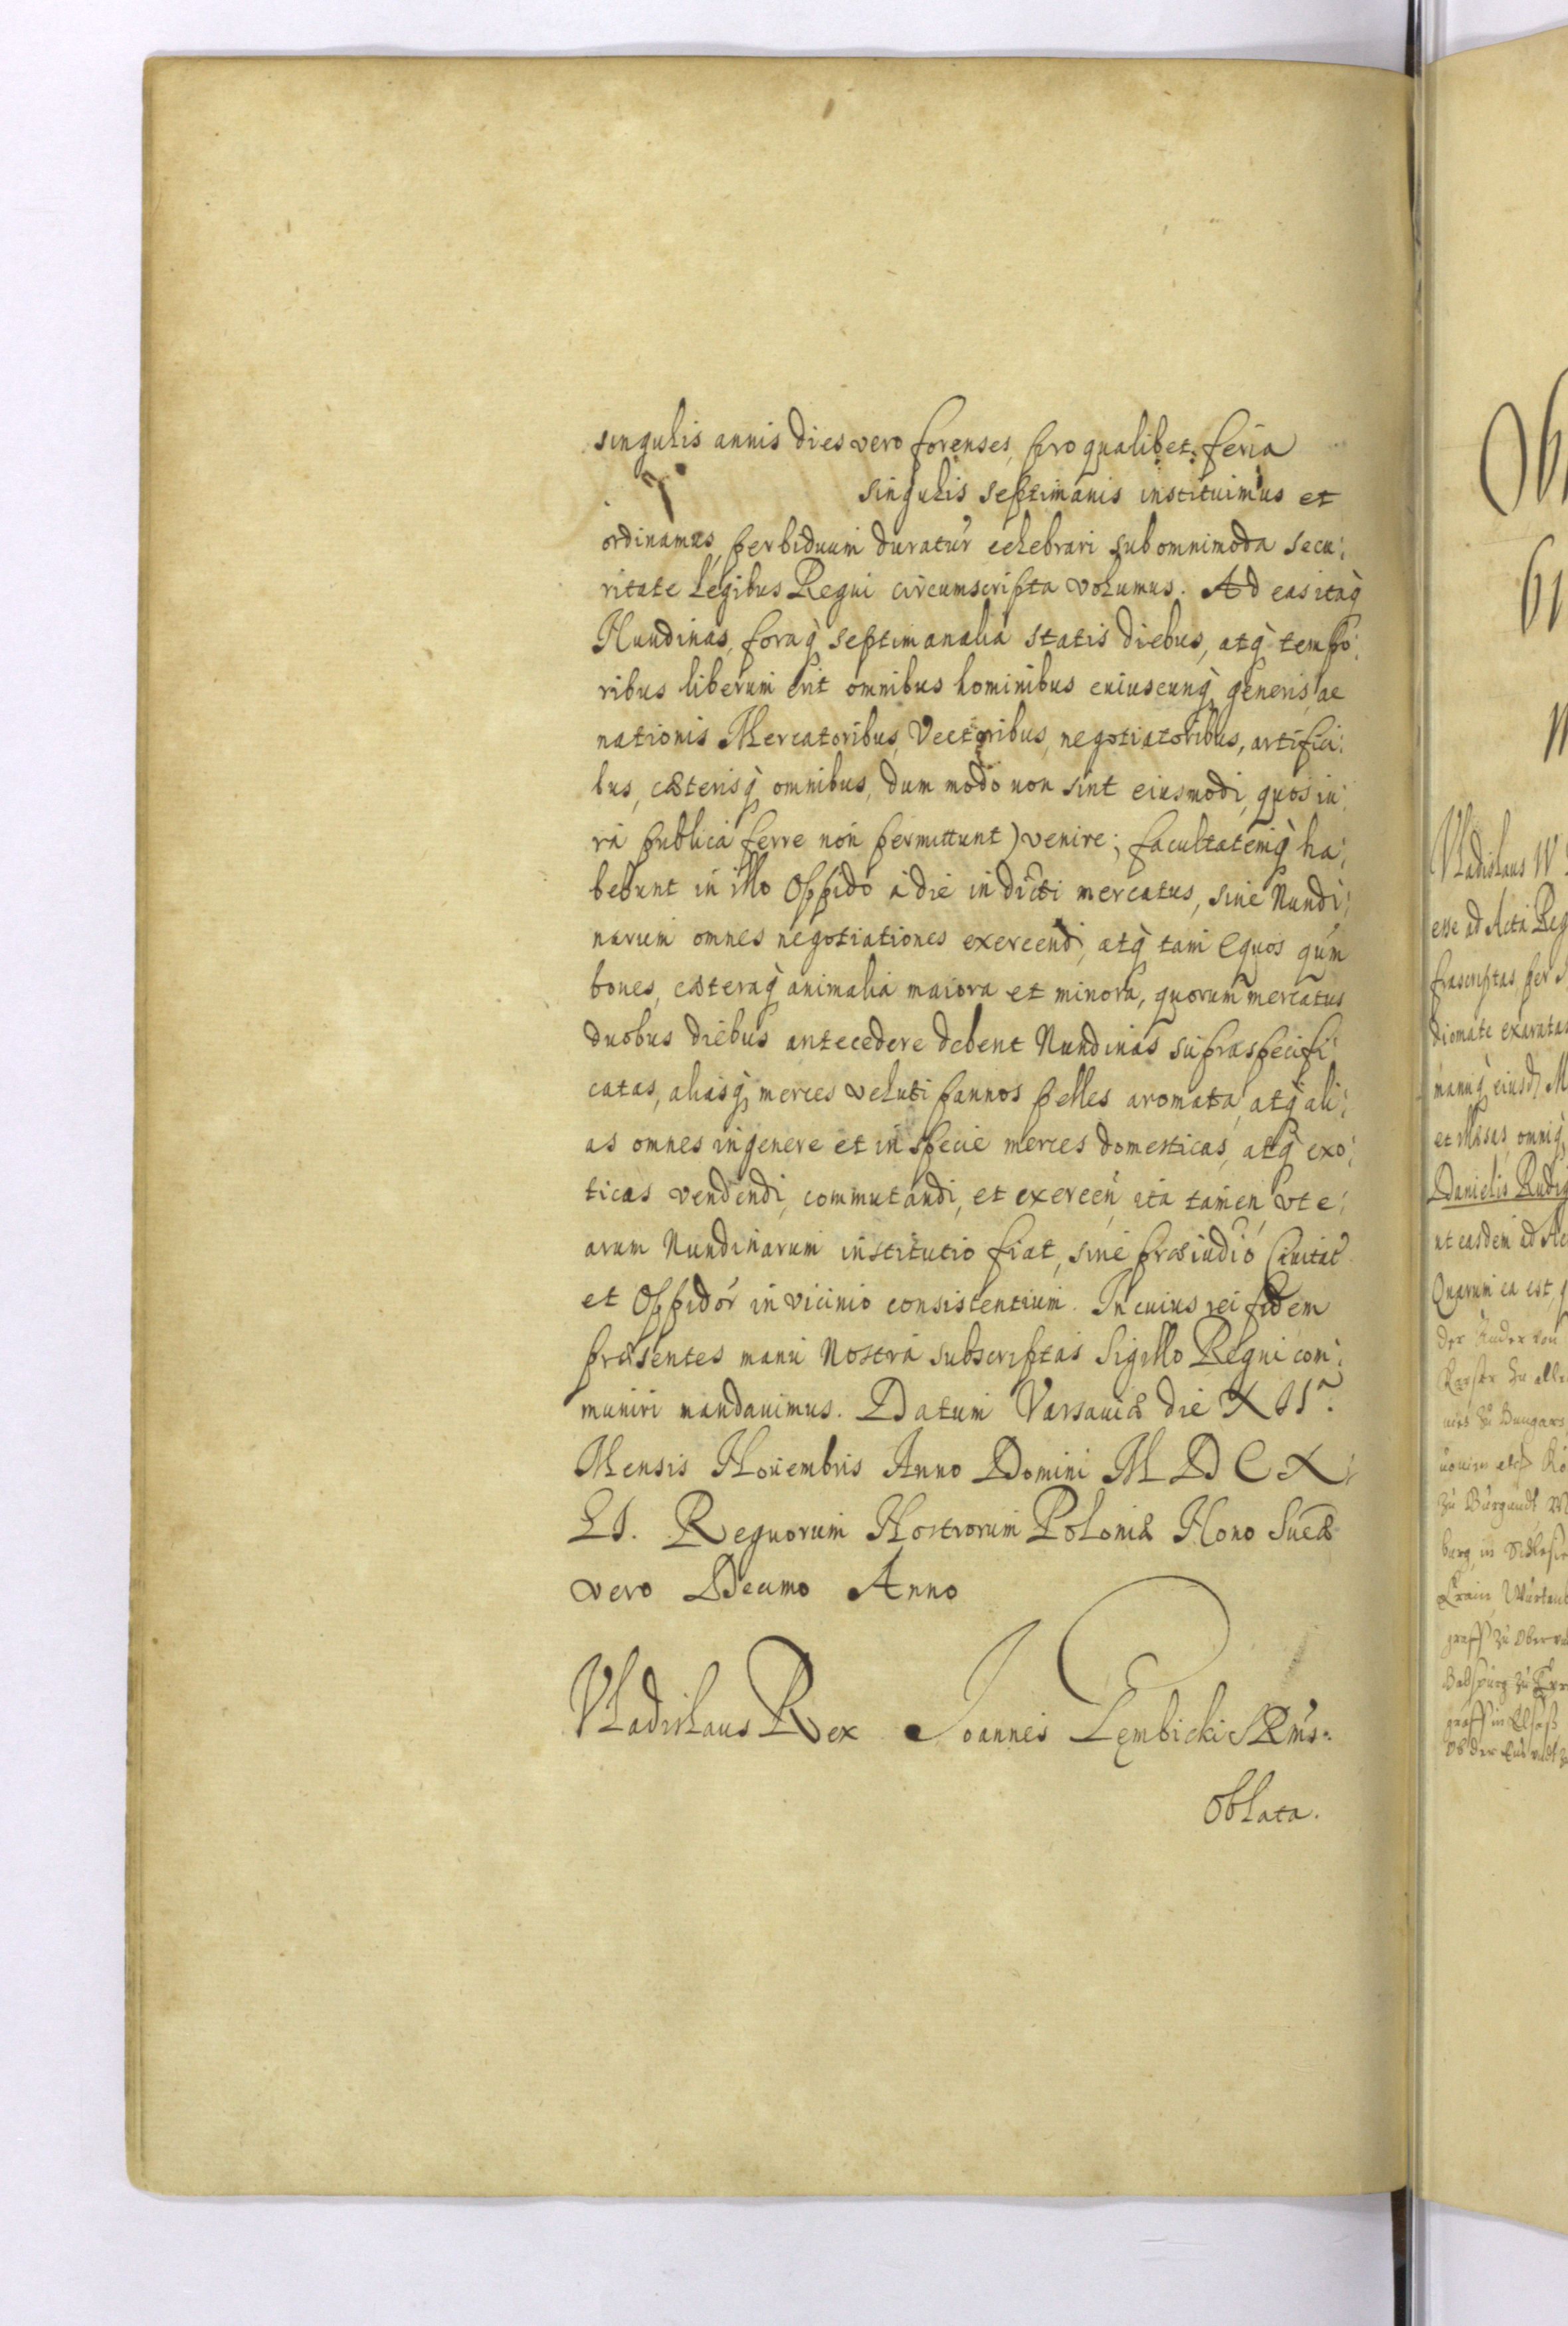 singulis annis dies vero forenses, pro qualibet feria
singulis septimanis instituimus et
ordinamus, per biduum duratur celebrari sub omnimoda secu:
ritate legibus Regni circumscripta volumus. Ad eas itaq
Nundinas, foraq septimanalia statis diebus, atq tempo:
ribus liberum erit omnibus hominibus cuiuscunq generis, ac
nationis Mercatoribus, Vectoribus, negotiatoribus, artifici:
bus, cæterisq omnibus, dum modo non sint eiusmodi, quos iu:
ra publica ferre non permittunt) venire; facultatemq ha:
bebunt in illo Oppido a die indicti mercatus, siue Nundi:
narum omnes negotiationes exercendi, atq tam Equos qum
boues, cæteraq animalia maiora et minora, quorum mercatus
duobus diebus antecedere debent Nundinas supraspecifi:
catas, aliasq, merces veluti pannos pelles aromata, atq ali:
as omnes in genere et in specie merces domesticas, atq exo:
ticas vendendi, commutandi, et exercen, ita tamen, vt e:
arum Nundinarum institutio fiat, sine præiudio Ciuitat
et Oppidor in vicinio consistentium. In cuius rei fidem
præsentes manu Nostra subscriptas Sigillo Regni com:
muniri mandauimus. Datum Varsauiæ die XII.
Mensis Nouembris Anno Domini M D C X:
LI. Regnorum Nostrorum Poloniæ Nono Sueæ
vero Decimo Anno
Vladislaus Rex Joannes Lęmbicki SRMs.
Oblata.
Vladislaus IV
esse ad Acta Reg
frascriptas per
diomate exaratas
manuq eiusd M
et illæsas, omniq
Danielis Rudig
ut easdem ad Ac
Quarum ea est, q